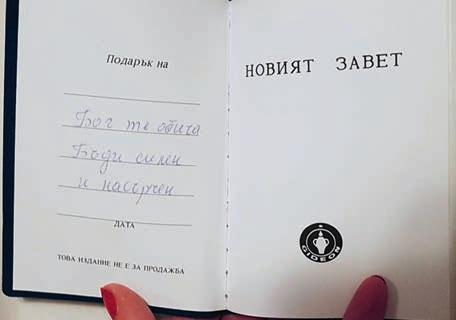 Подарък на
Бог те обича
Бъди силен
и насърчен
ДАТА
ТОВА ИЗДАНИЕ НЕ Е ЗА ПРОДАЖБА
НОВИЯТ ЗАВЕТ
GIDEON